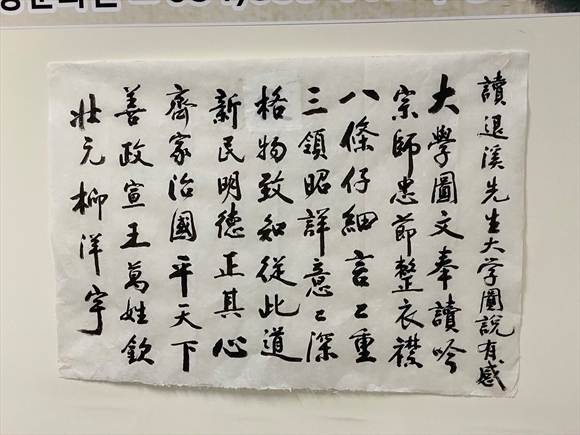 讀退溪先生大学圖說有感
大學圖文奉讀吟
宗師忠節整衣襟
八條仔細言〻重
三領昭詳意〻深
格物致知從此道
新民明德正其心
齊家治國平天下
善政宣王萬姓欽
壯元柳洋宇